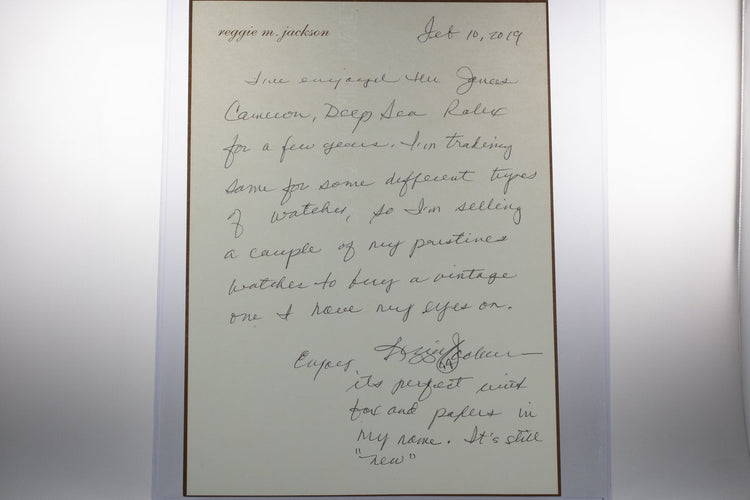 reggie m. jackson
Feb 10, 2019
I've enjoyed the James
Cameron, Deep Sea Rolex
for a few years. I'm trading
same for some different types
of watches, so I'm selling
a couple of my pristines
watches to buy a vintage
one I have my eyes on.
Enjoy Reggie Jackson
44
it's perfect with
box and papers in
my name. It's still
"new"